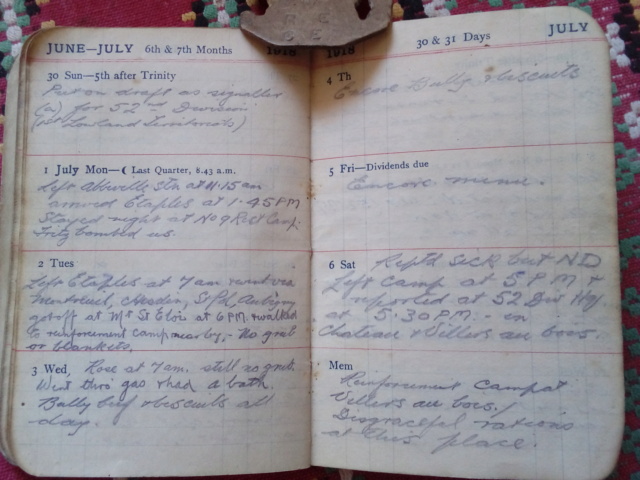 JUNE—JULY 6th & 7th Months 1918
30 Sun—5th after Trinity
Put on draft as signaller
(a) for 52nd Division
(1st Lowland Territorials)
1 July Mon—( Last Quarter, 8.43 a.m.
Left Abbeville Stn at 11.15 am
arrived Etaples at 1-45 PM
Stayed night at No 9 Rest Camp.
Fritz bombed us.
2 Tues
Left Etaples at 7 am went via
Montreuil, Hesdin, St Pol, Aubigny
got off at Mt St Eloi at 6 PM. & walked
to reinforcement camp nearby. - No grub
or blankets.
3 Wed, Rose at 7 am. still no grub.
Went thro' gas & had a bath.
Bully beef & biscuits all
day.
1918 30 & 31 Days JULY
4 Th
Encore Bully & biscuits
5 Fri—Dividends due
Encore menu.
6 Sat Rept'd sick but ND
Left camp at 5 PM &
reported at 52 Div Hq.
at 5.30 PM. - in
Chateau & Villers au bois.
Mem
Reinforcement Camp at
Villers au bois.
Disgraceful rations
at this place.